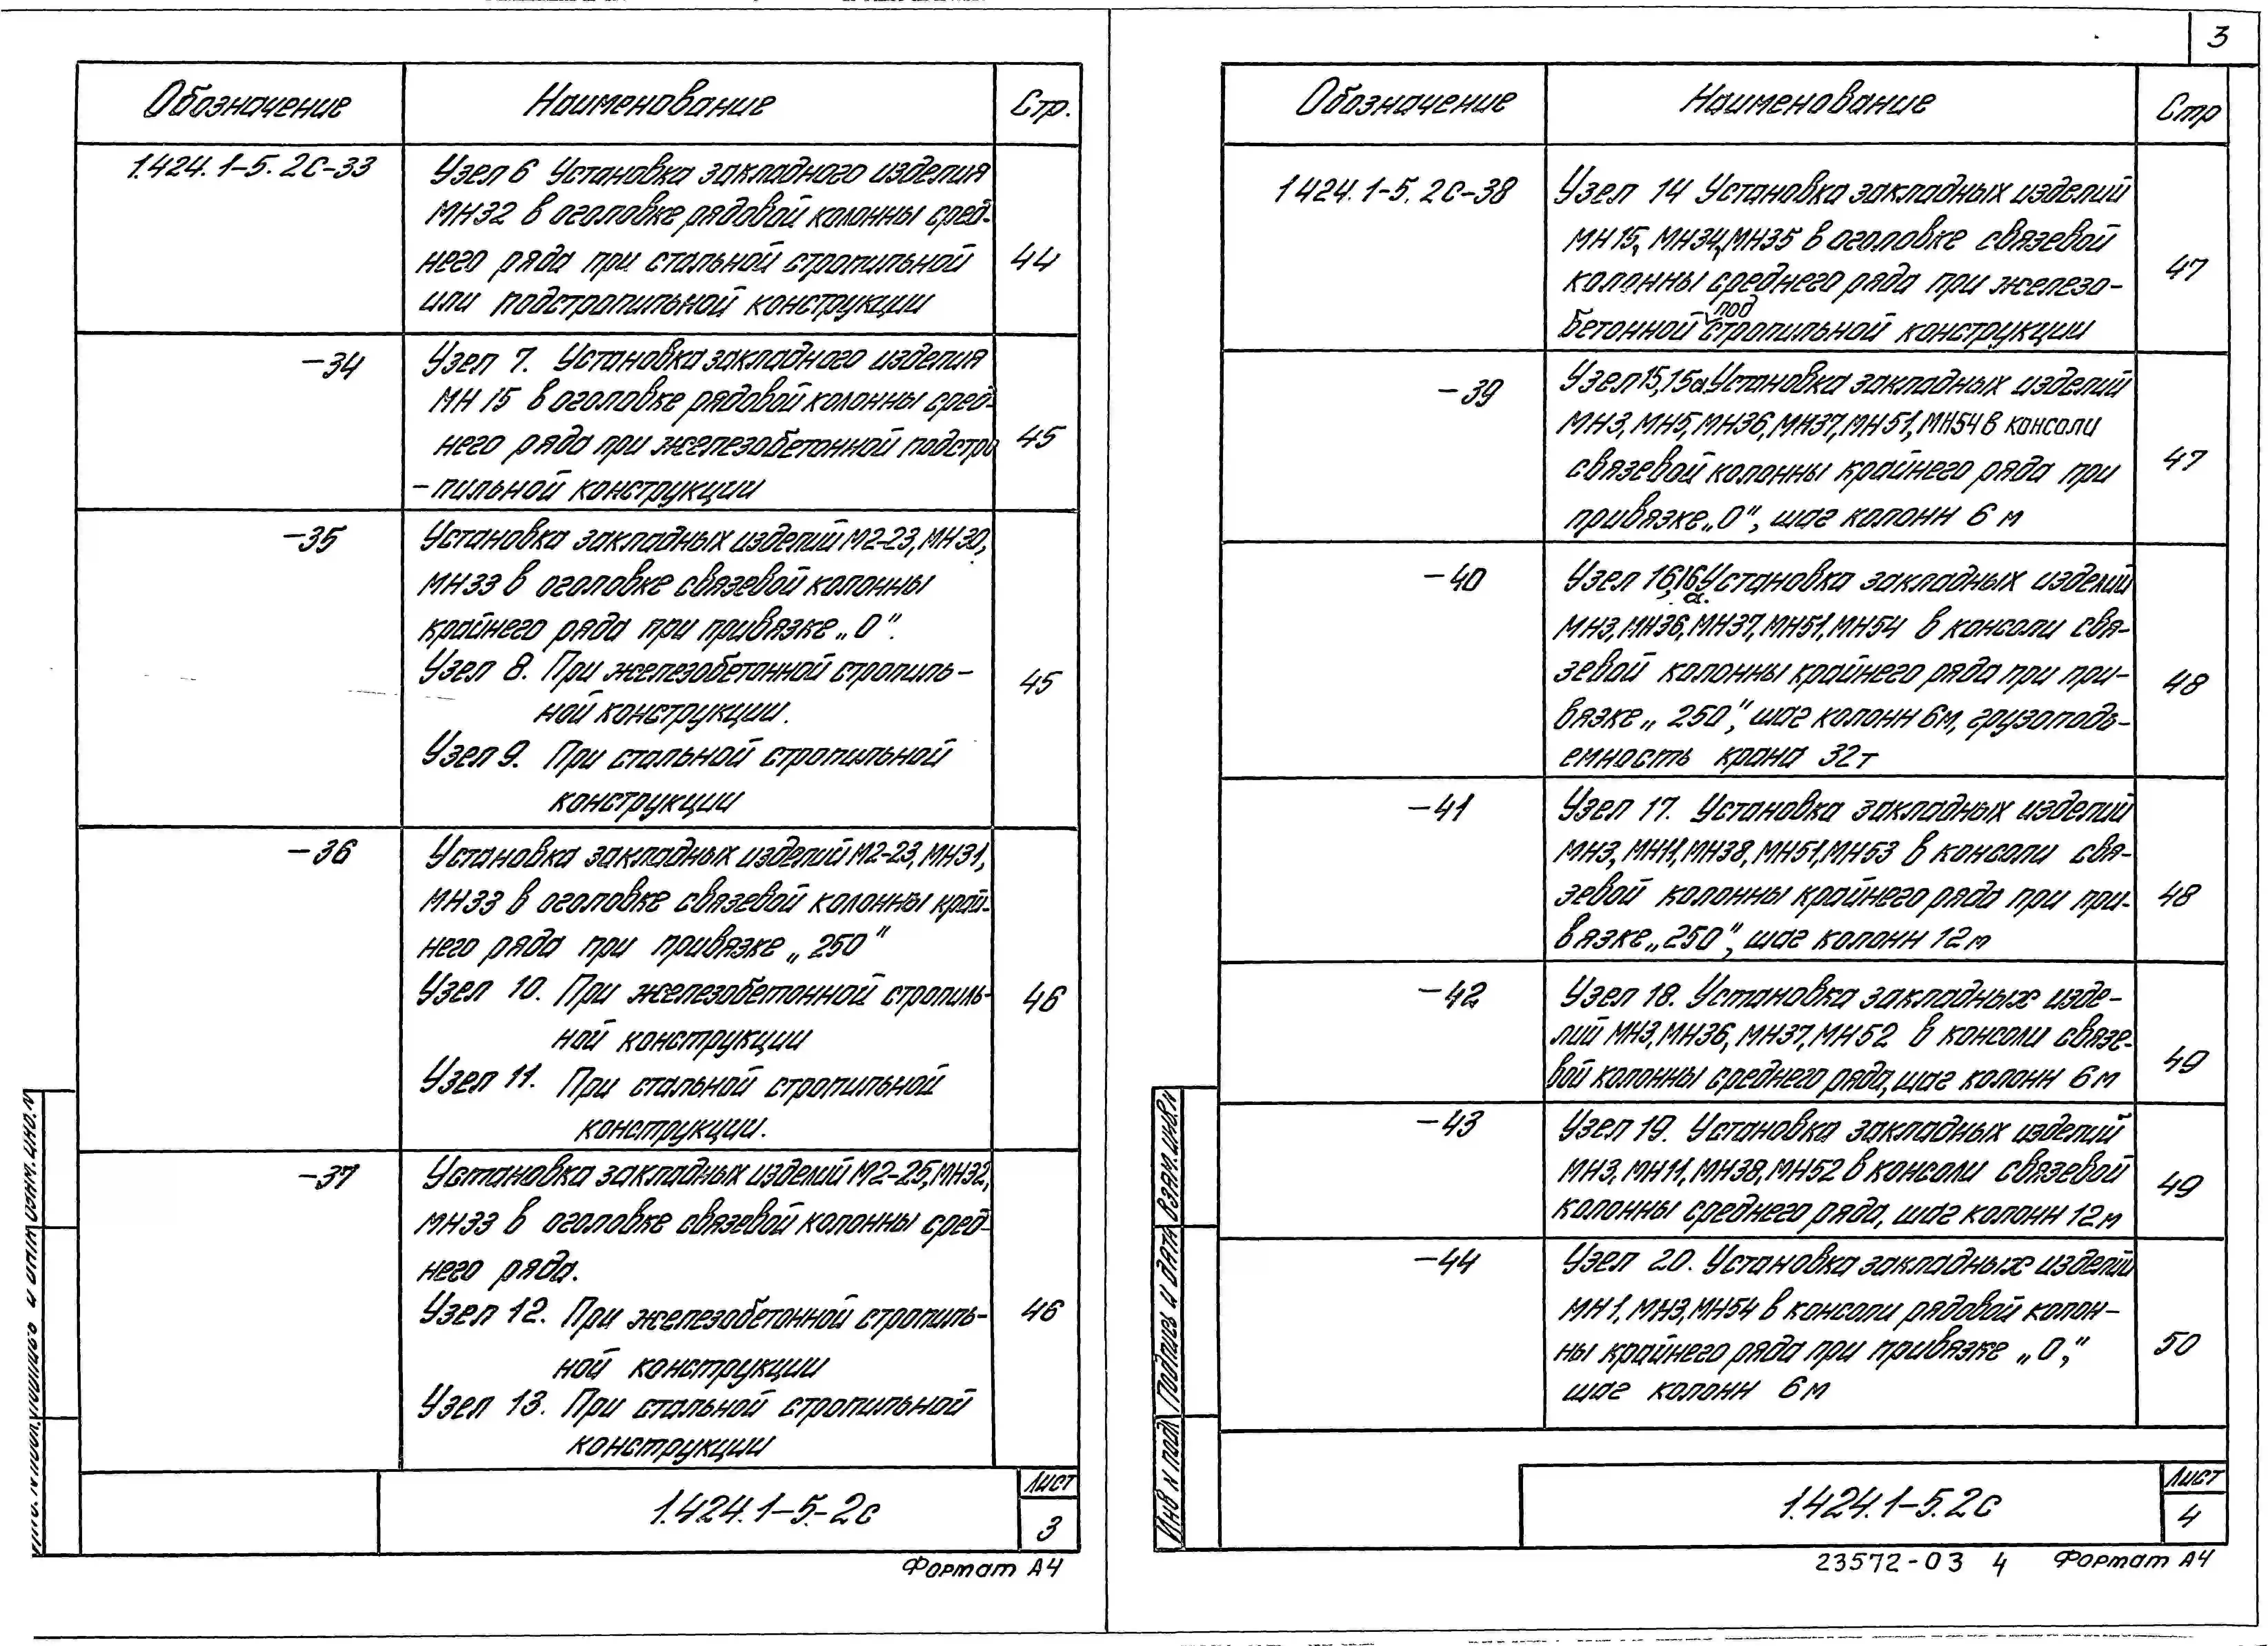 3
Обозначение Наименование Стр.
1.424.1-5.2С-33 Узел 6 Установка закладного изделия
МН32 в оголовке рядовой колонны сред-
него ряда при стальной стропильной
или подстропильной конструкции
44
-34 Узел 7. Установка закладного изделия
МН 15 в оголовке рядовой колонны сред-
него ряда при железобетонной подстро
-пильной конструкции
45
-35 Установка закладных изделий М2-23, МН30,
МН33 в оголовке связевой колонны
крайнего ряда при привязке „0".
Узел 8. При железобетонной стропиль-
ной конструкции.
Узел 9. При стальной стропильной
конструкции
45
-36 Установка закладных изделий М2-23, МН31,
МН33 в оголовке связевой колонны край-
него ряда при привязке „250"
Узел 10. При железобетонной стропиль-
ной конструкции
Узел 11. При стальной стропильной
конструкции.
46
-37 Установка закладных изделий М2-25, МН32,
МН33 в оголовке связевой колонны сред-
него ряда.
Узел 12. При железобетонной стропиль-
ной конструкции
Узел 13. При стальной стропильной
конструкции
46
1.424.1-5.-2с
Лист
3
Формат А4
Обозначение Наименование Стр
1424.1-5.2С-38 Узел 14 Установка закладных изделий
МН15, МН34, МН35 в оголовке связевой
колонны среднего ряда при железо-
бетонной подстропильной конструкции
47
-39 Узел 15, 15а. Установка закладных изделий
МН3, МН5, МН36, МН37, МН51, МН54 в консоли
связевой колонны крайнего ряда при
привязке „0", шаг колонн 6 м
47
-40 Узел 16, 16а. Установка закладных изделий
МН3, МН36, МН37, МН51, МН54 в консоли свя-
зевой колонны крайнего ряда при при-
вязке „250", шаг колонн 6м, грузоподъ-
емность крана 32т
48
-41 Узел 17. Установка закладных изделий
МН3, МН11, МН38, МН51, МН53 в консоли свя-
зевой колонны крайнего ряда при при-
вязке „250", шаг колонн 12м
48
-42 Узел 18. Установка закладных изде-
лий МН3, МН36, МН37, МН52 в консоли связе-
вой колонны среднего ряда, шаг колонн 6м
49
-43 Узел 19. Установка закладных изделий
МН3, МН11, МН38, МН52 в консоли связевой
колонны среднего ряда, шаг колонн 12м
49
-44 Узел 20. Установка закладных изделий
МН1, МН3, МН54 в консоли рядовой колон-
ны крайнего ряда при привязке „0,"
шаг колонн 6м
50
Инв N подл Подпись и дата Взам.инв N
1.424.1-5.2с
Лист
4
23572-03 4 Формат А4